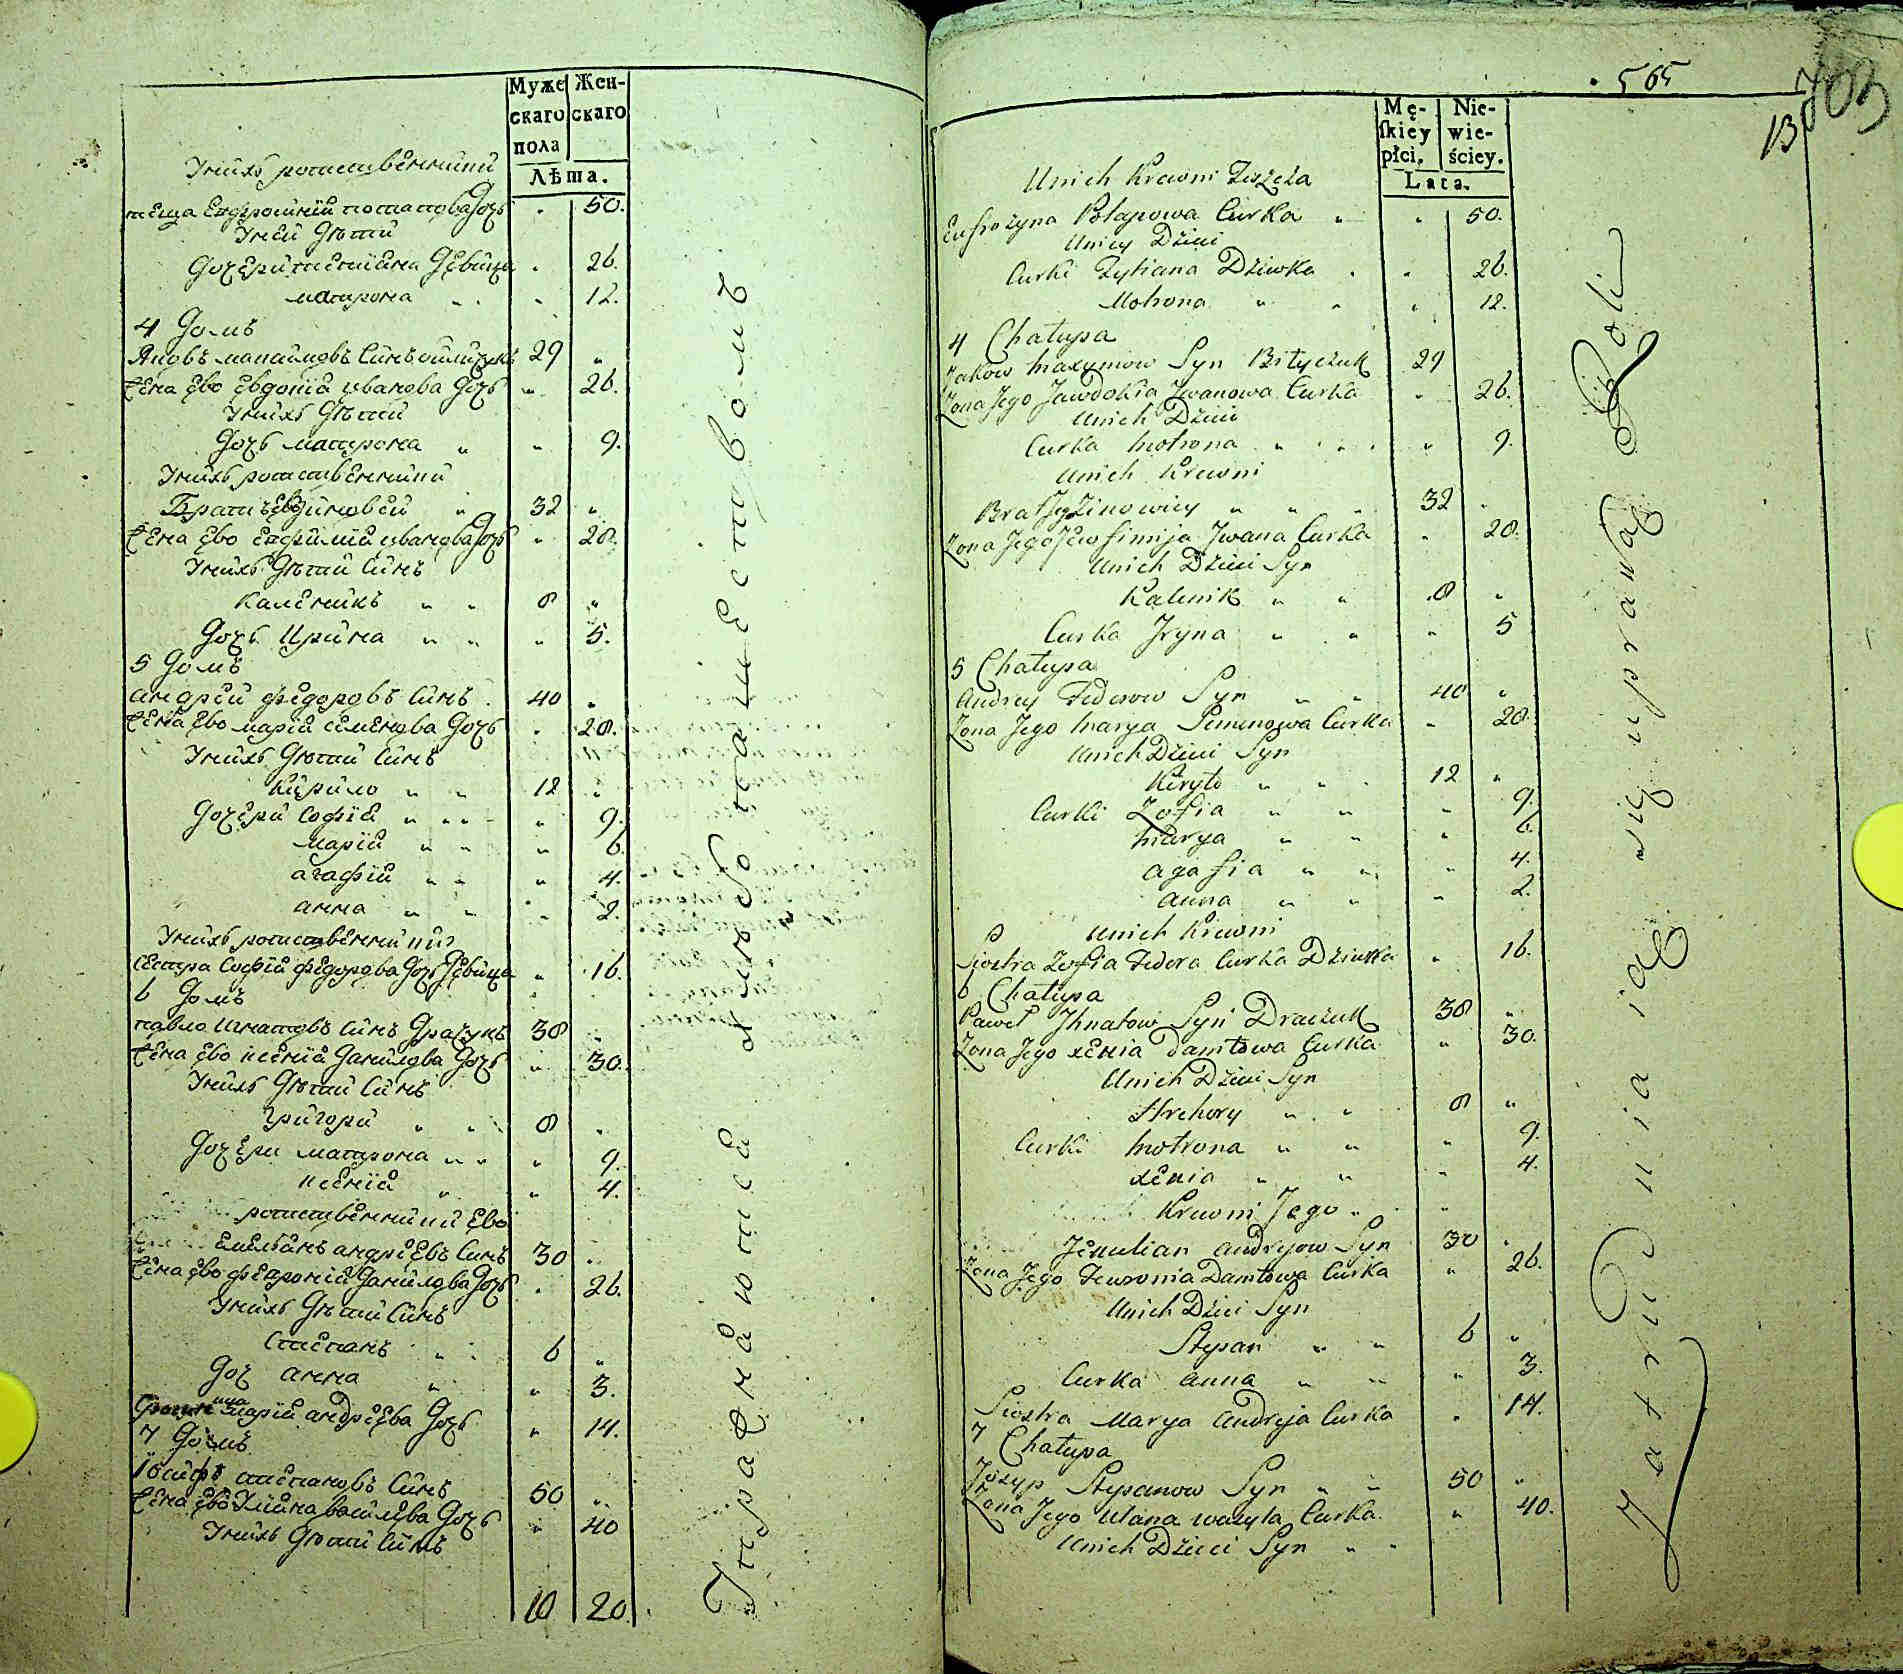 Муже Жен-
скаго скаго
пола
Лѣта.
Унихъ ротственники
теща Ефросинїа потапова дочъ " 50.
Уней дѣти
дочери татїана дѣвица " 26.
матрона " " " 12.
4 Домъ
Яковъ Синъ 29 "
жена ево евдокїа иванова дочъ " 26.
Унихъ дѣти
дочъ матрона " " 9.
Унихъ ротственники
Братъ ево зиновей " 32 "
жена ево ефимїа иванова дочъ " 28.
Унихъ дѣти Синъ
каленикъ " " 8 "
дочъ Ирина " " " 5.
5 Домъ
андрей федоровъ Синъ 40 "
жена ево марїа семенова дочъ " 28.
Унихъ дѣти Синъ
кирило " " 12 "
дочери софїа " " " " 9.
марїа " " " 6.
агафїа " " " 4.
анна " " " 2.
Унихъ ротственники
сестра софїа федорова дочъ дѣвица " 16.
6 Домъ
павло игнатовъ Синъ драчукъ 38 "
жена ево ксенїа данилова дочъ " 30.
Унихъ дѣти Синъ
григори " " 8 "
дочери матрона " " " 9.
ксенїа " " 4.
ротственники ево
емельянъ андреевъ Синъ 30 "
жена ево февронїа данилова дочъ " 26.
Унихъ дѣти Синъ
степанъ " " 6 "
доч анна " " 3.
марїа андреева дочъ " 14.
7 Домъ
Іосифъ степановъ Синъ 50 "
жена ево улїана василева дочъ " 40
Унихъ дѣти Синъ
10 20.
565
13
703
Mę- Nie-
skiey wie-
płci. ściey.
Lata.
Unich Krewni Teszcza
Eufrozyna Potapowa Curka " " 50.
Uniey Dzieci
Curki Tytiana Dziwka " " 26.
Motrona " " " 12.
4 Chałupa
Jakow Maxymow Syn Bityczuk 29
Zona Jego Jawdokia Jwanowa Curka " 26.
Unich Dzieci
Curka Motrona " " " " 9.
Unich Krewni
Brat Jego Zinowiey " " " 32 "
Zona Jego Jewfimija Jwana Curka " 28.
Unich Dzieci Syn
Kalenik " " 8 "
Curka Jryna " " " 5
5 Chałupa
Andrey Fedorow Syn " " 40 "
Zona Jego Marya Semenowa Curka " 28.
Unich Dzieci Syn
Kiryło " " " 12 "
Curki Zofia " " " 9.
Marya " " " 6.
Agafia " " " 4.
Anna " " " 2.
Unich Krewni
Siostra Zofia Fedora Curka Dziewka " 16.
6 Chałupa
Paweł Jhnatow Syn Draczuk 38 "
Zona Jego Xenia Daniłowa Curka " 30.
Unich Dzieci Syn
Hrehory " " 8 "
Curki Motrona " " " 9.
Xenia " " " 4.
Krewni Jego " "
Jemulian Andryow Syn 30 "
Zona Jego Fewronia Daniłowa Curka " 26.
Unich Dzieci Syn
Stepan " " 6 "
Curka Anna " " " 3.
Siostra Marya Andreja Curka " 14.
7 Chałupa
Jozyp Stepanow Syn " " 50 "
Zona Jego Ulana Wasyla Curka " 40.
Unich Dzieci Syn " "